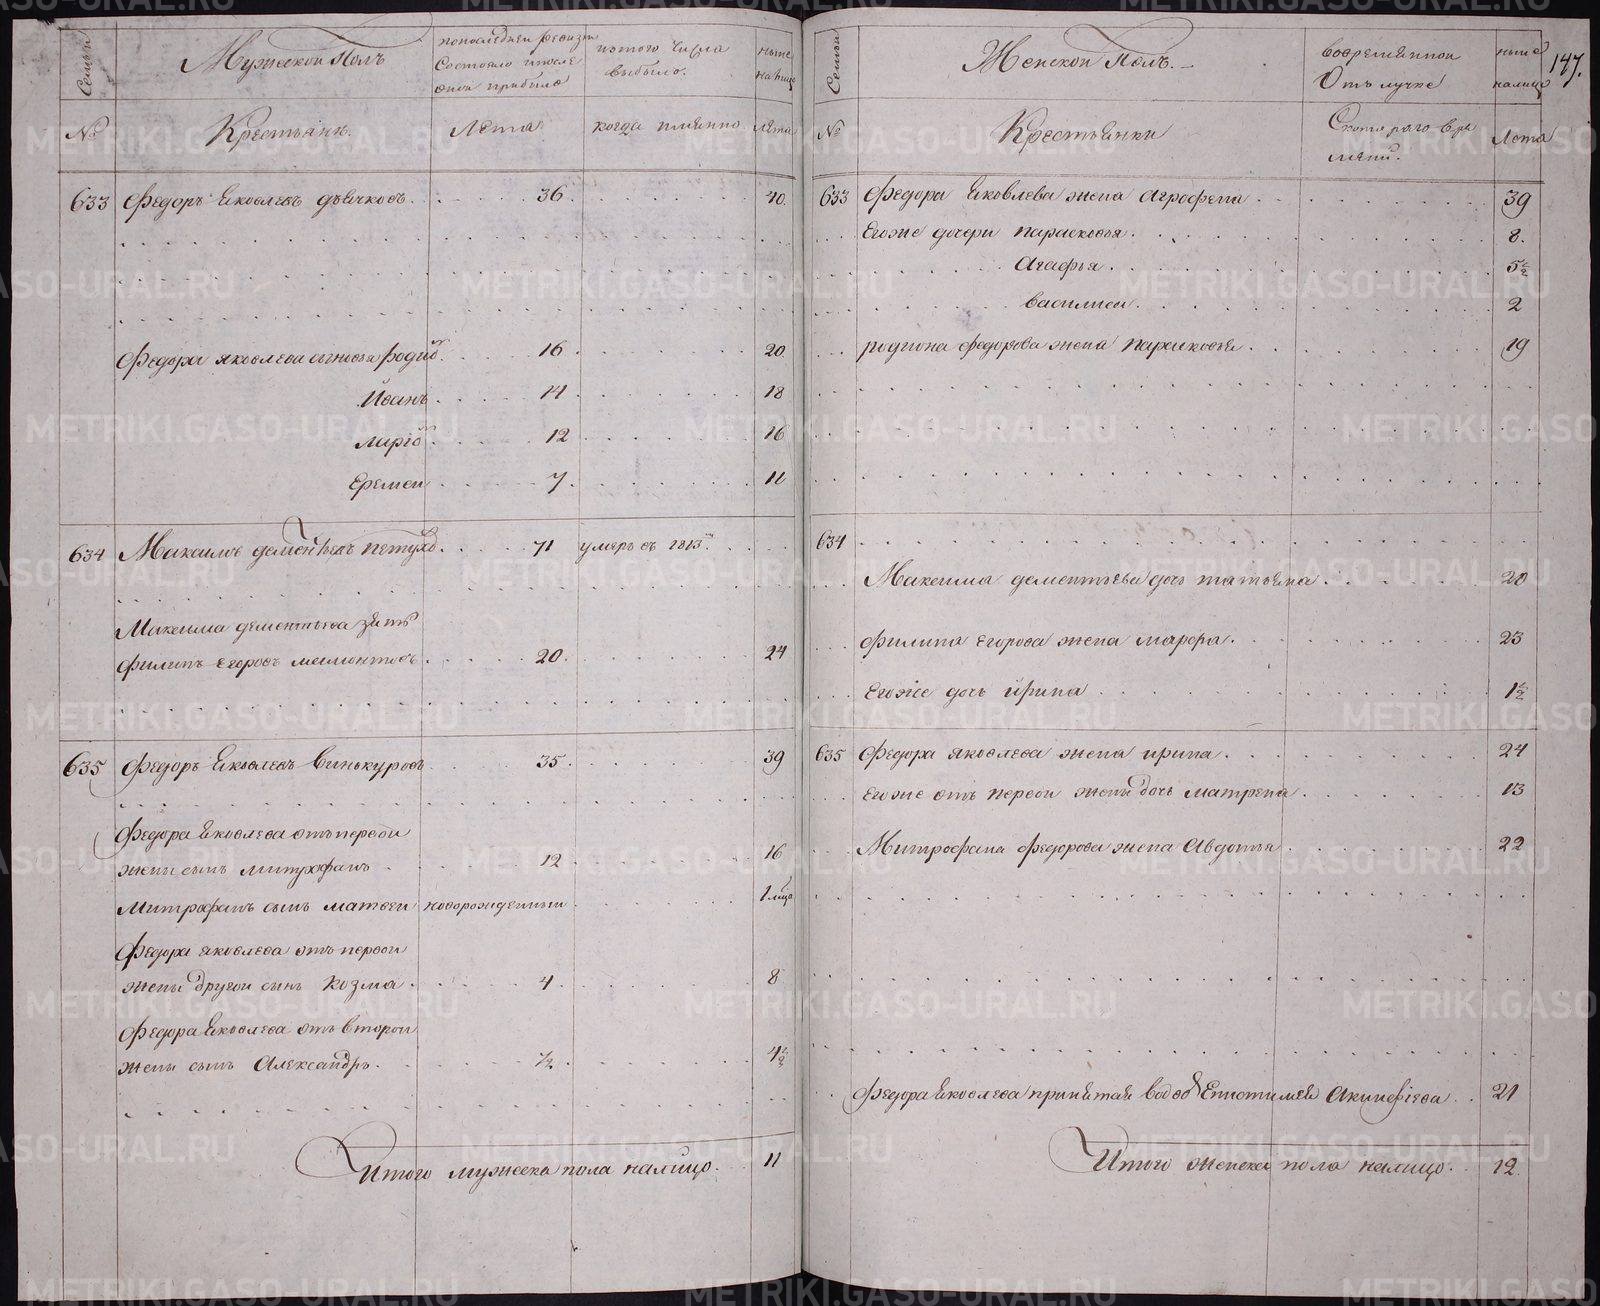 Семьи
Мужескои Полъ
по последней ревизiи
Состояло и после
онои прибыло
изтого числа
выбыло.
ныне
на лицо
№
Крестьянъ.
Лета
когда имянно
лета
633 Федоръ Яковлевъ дьячковъ 36 40
Федора яковлева сыновья родио 16 20
Йванъ 14 18
ларiо 12 16
Еремеи 7 11
634 Максимъ дементьевъ петухо 71 умеръ въ 1813м.
Максима дементьева зять
Филипъ Егоровъ мамонтовъ 20 24
635 Федоръ Яковлевъ Винокуровъ 35 39
Федора Яковлева отъ первои
жены сынъ митрофанъ 12 16
Митрофанъ сынъ матвеи новорожденныи
Федора яковлева отъ первои
жены другои сынъ Козма 4 8
Федора Яковлева отъ второи
жены сынъ Александръ. ½ 4½
Итого мужеска пола налицо. 11
Семьи
Женскои Полъ.
вовремяннои
Отълучке
ныне
налицо
147.
№
Крестьянки
Скотораго вре
мяни.
Лета
633 Федора Яковлева жена Агрофена 39
Егоже дочери Парасковья. 8.
Агафья. 5½
василиса. 2
родиона федорова жена парасковья. 19
634
Максима дементьева дочь татьяна 20
филипа Егорова жена марфа. 23
Егоже дочь йрина 1½
635 Федора яковлева жена ирина. 24
Егоже отъ первои жены дочь матрена 13
Митрофана федорова жена Авдотья 22
Федора Яковлева принятая вдова Епистимея Акинфiева 21
Итого женска пола налицо. 12
METRIKI.GASO-URAL.RU